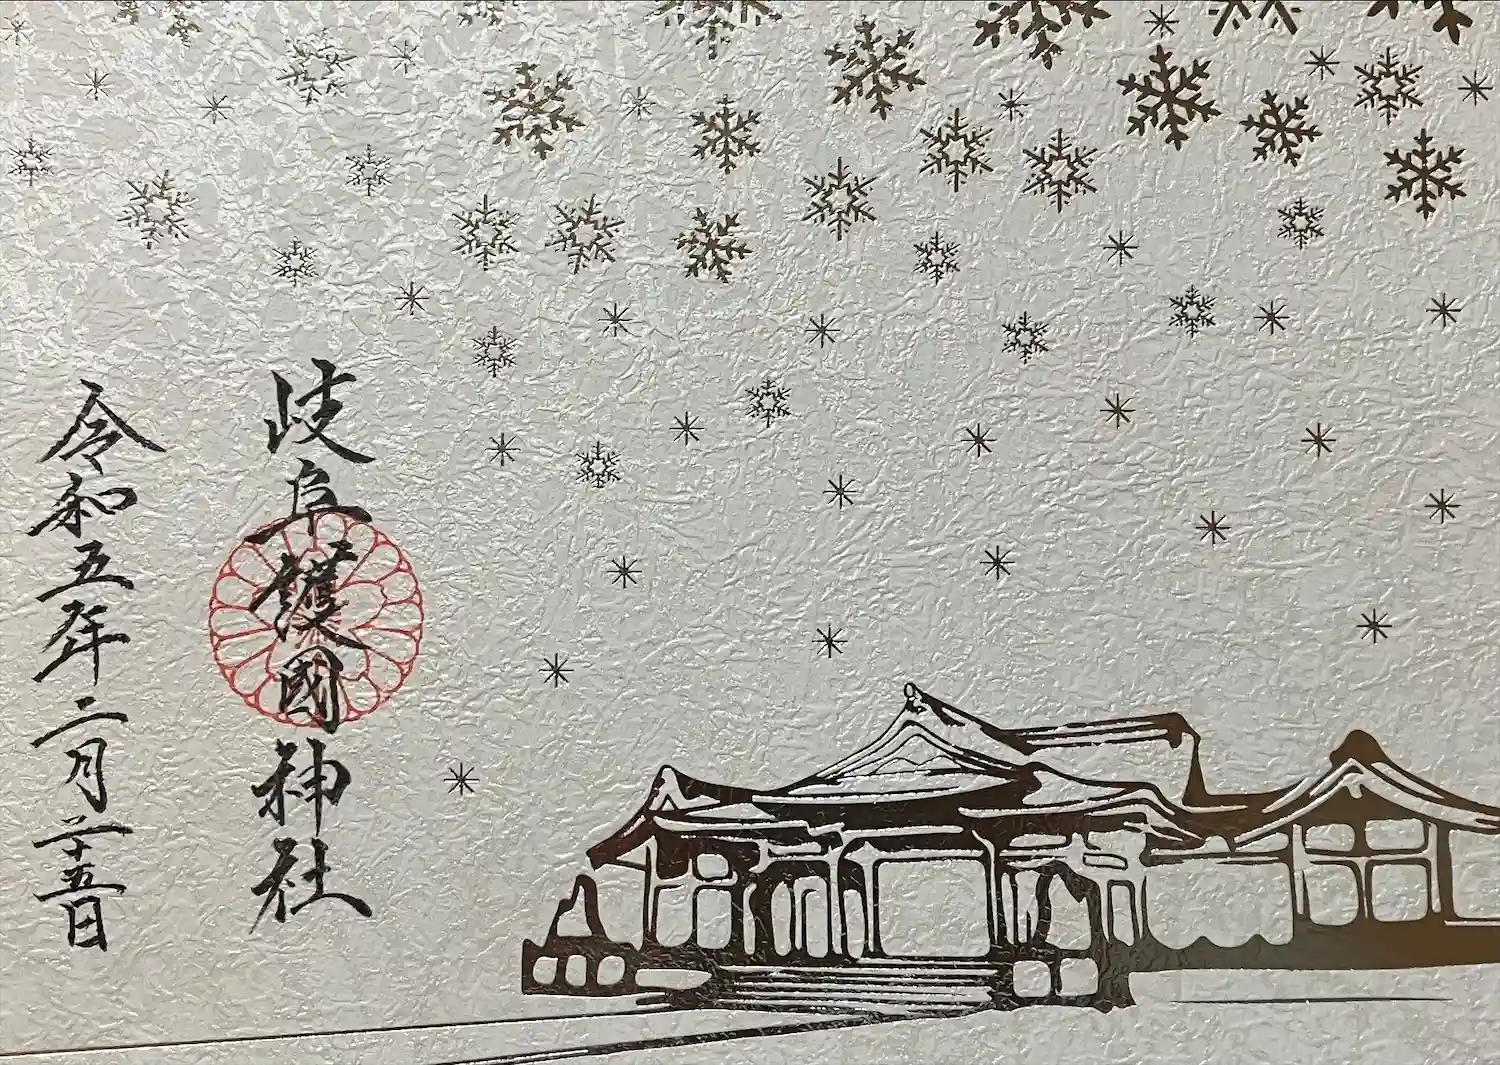 岐阜護國神社
令和五年二月二十五日